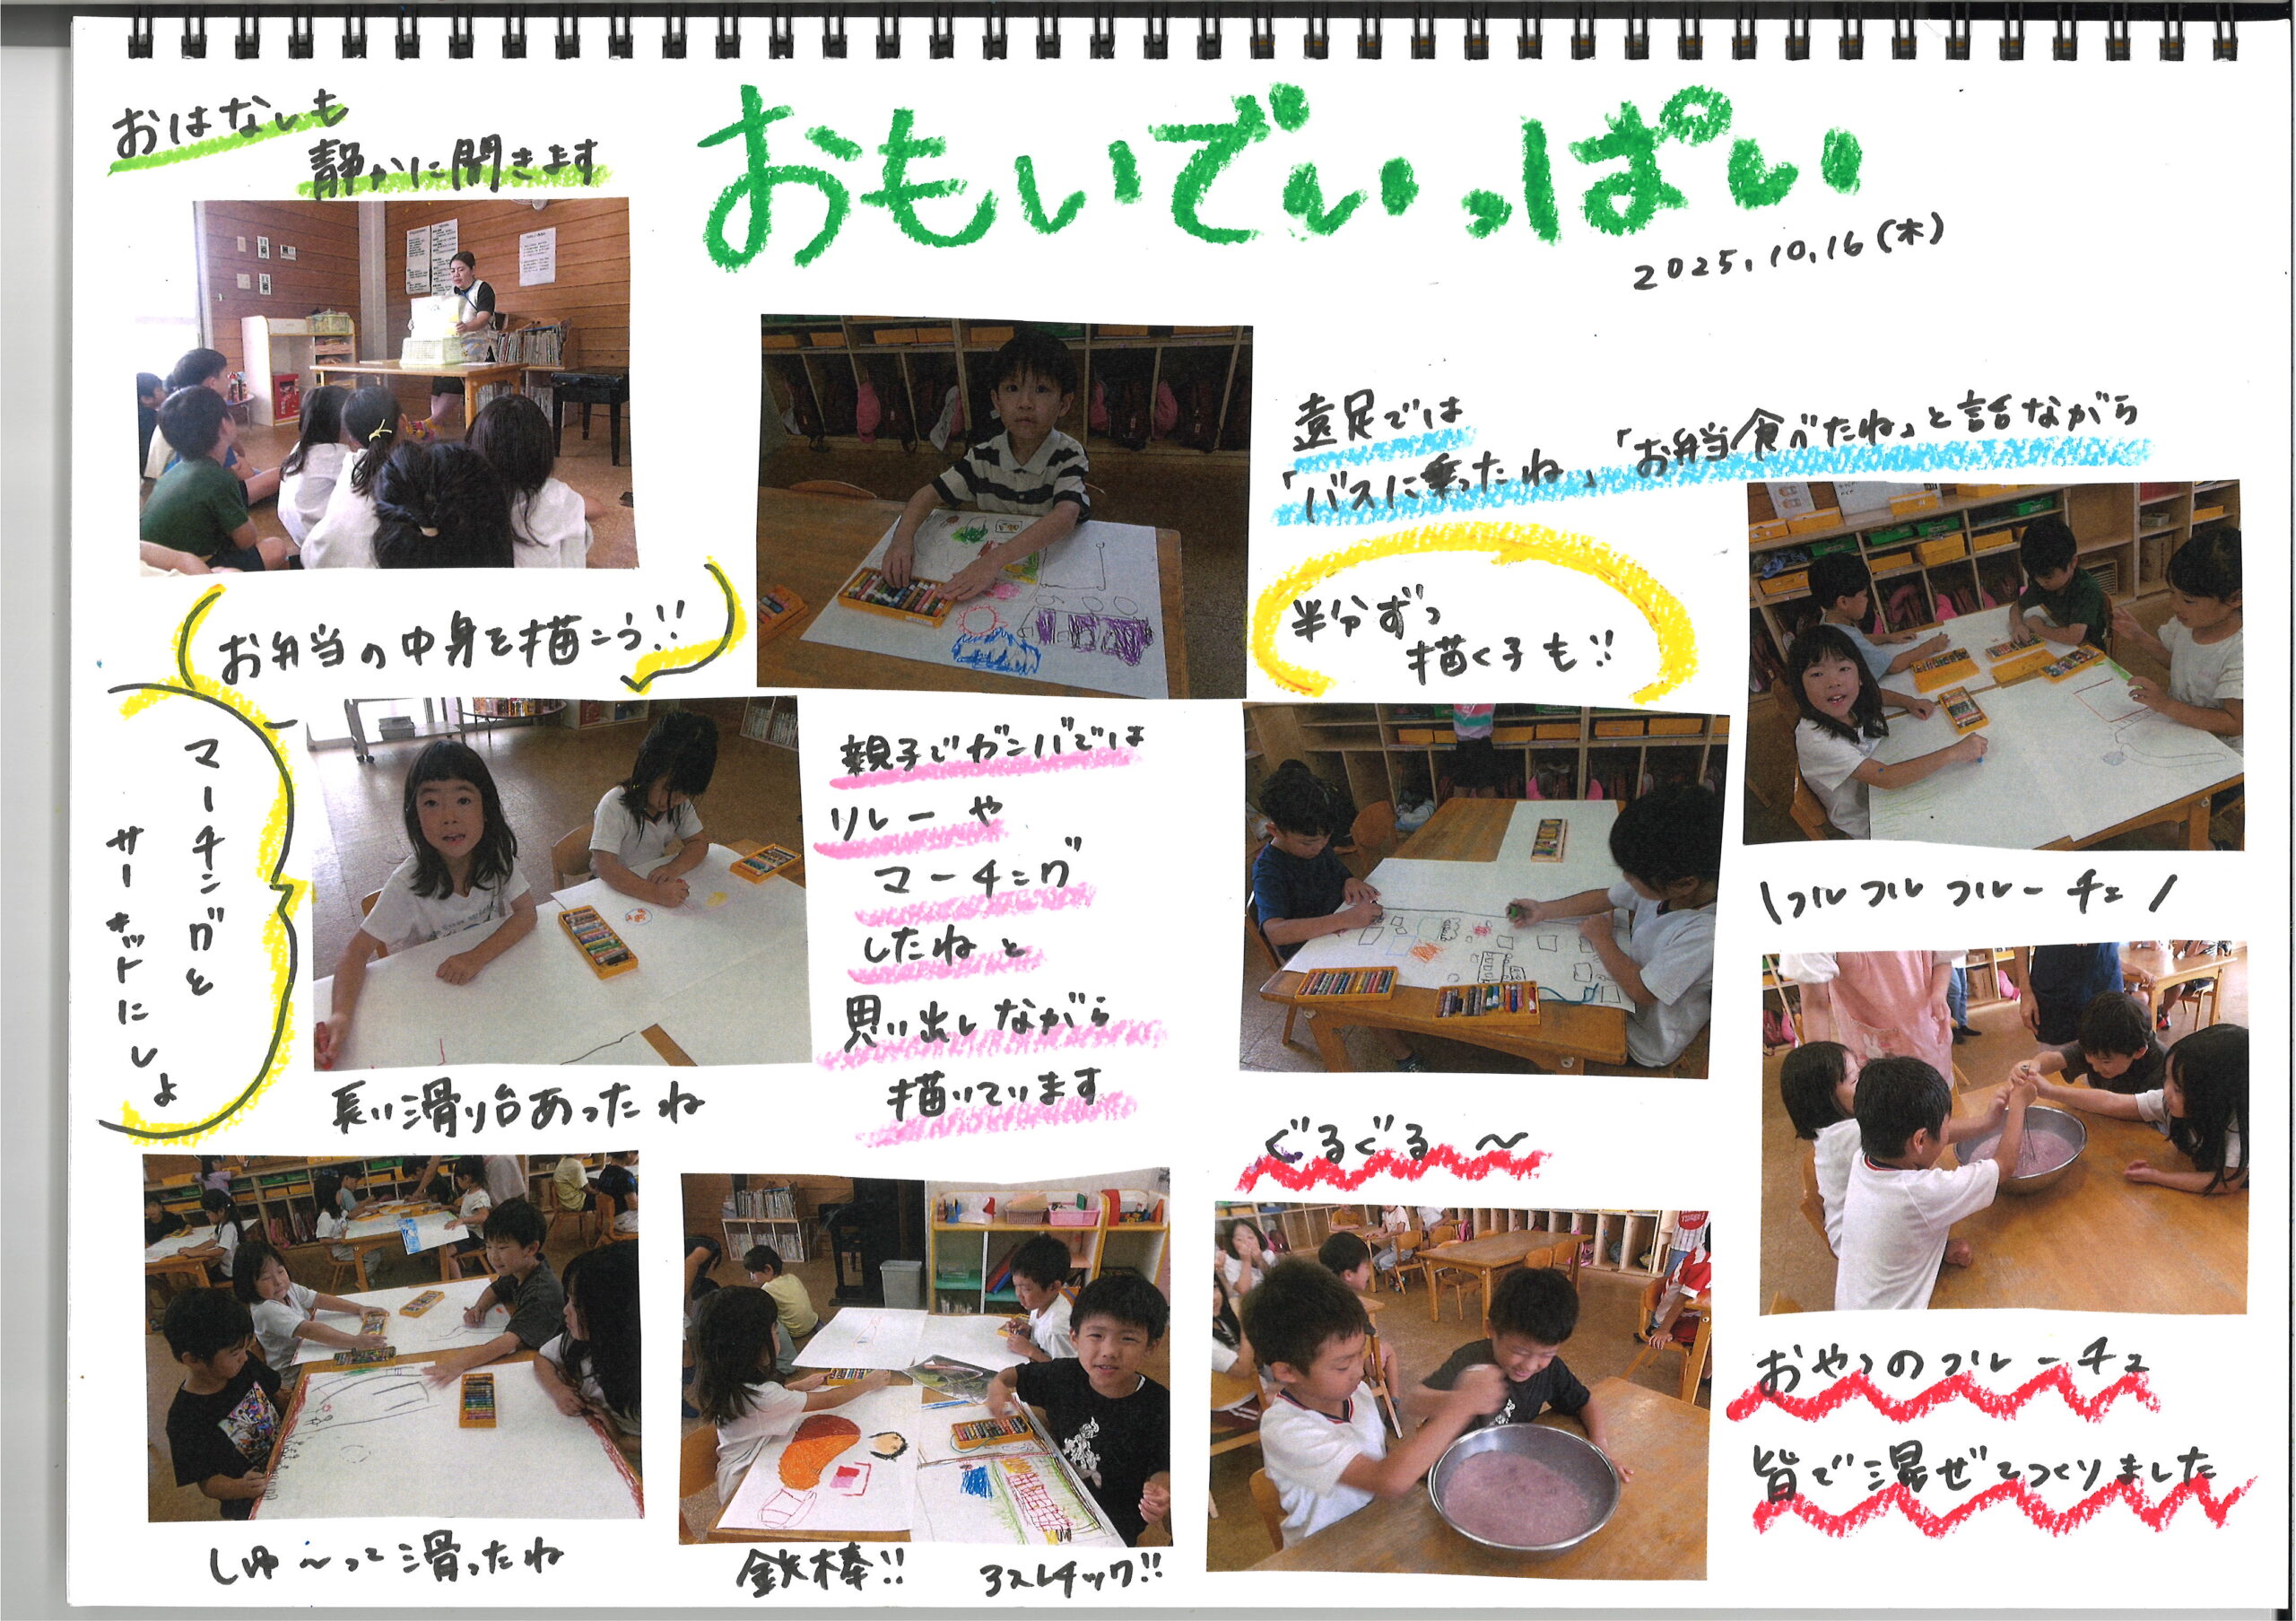 おもいでいっぱい
2025.10.16(木)
おはなしも
静かに聞きます
お弁当の中身を描こう!!
マーチングと
サーキットにしよ
長い滑り台あったね
親子でガンバでは
リレーや
マーチング
したねと
思い出しながら
描いています
遠足では
「バスに乗ったね」「お弁当食べたね」と話ながら
半分ずつ
描く子も!!
\フルフルフルーチェ/
ぐるぐる〜
おやつのフルーチェ
皆で混ぜてつくりました
しゅ〜って滑ったね
鉄棒!!
アスレチック!!